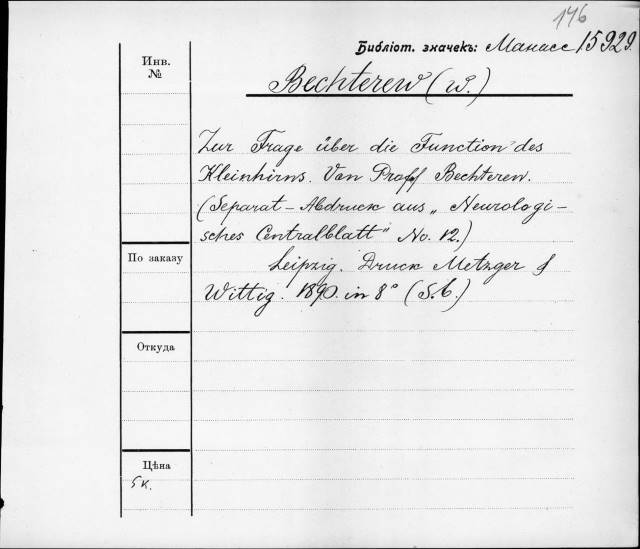 146
Библіот. значекъ: Манасс 15929.
Инв.
№
Bechterew (W.)
Zur Frage über die Function des
Kleinhirns. Von Proff Bechterew.
(Separat-Abdruck aus „Neurologi-
sches Centralblatt" No. 12.)
По заказу
Leipzig. Druck Metzger &
Wittig. 1890. in 8° (S.6.)
Откуда
Цѣна
5 к.